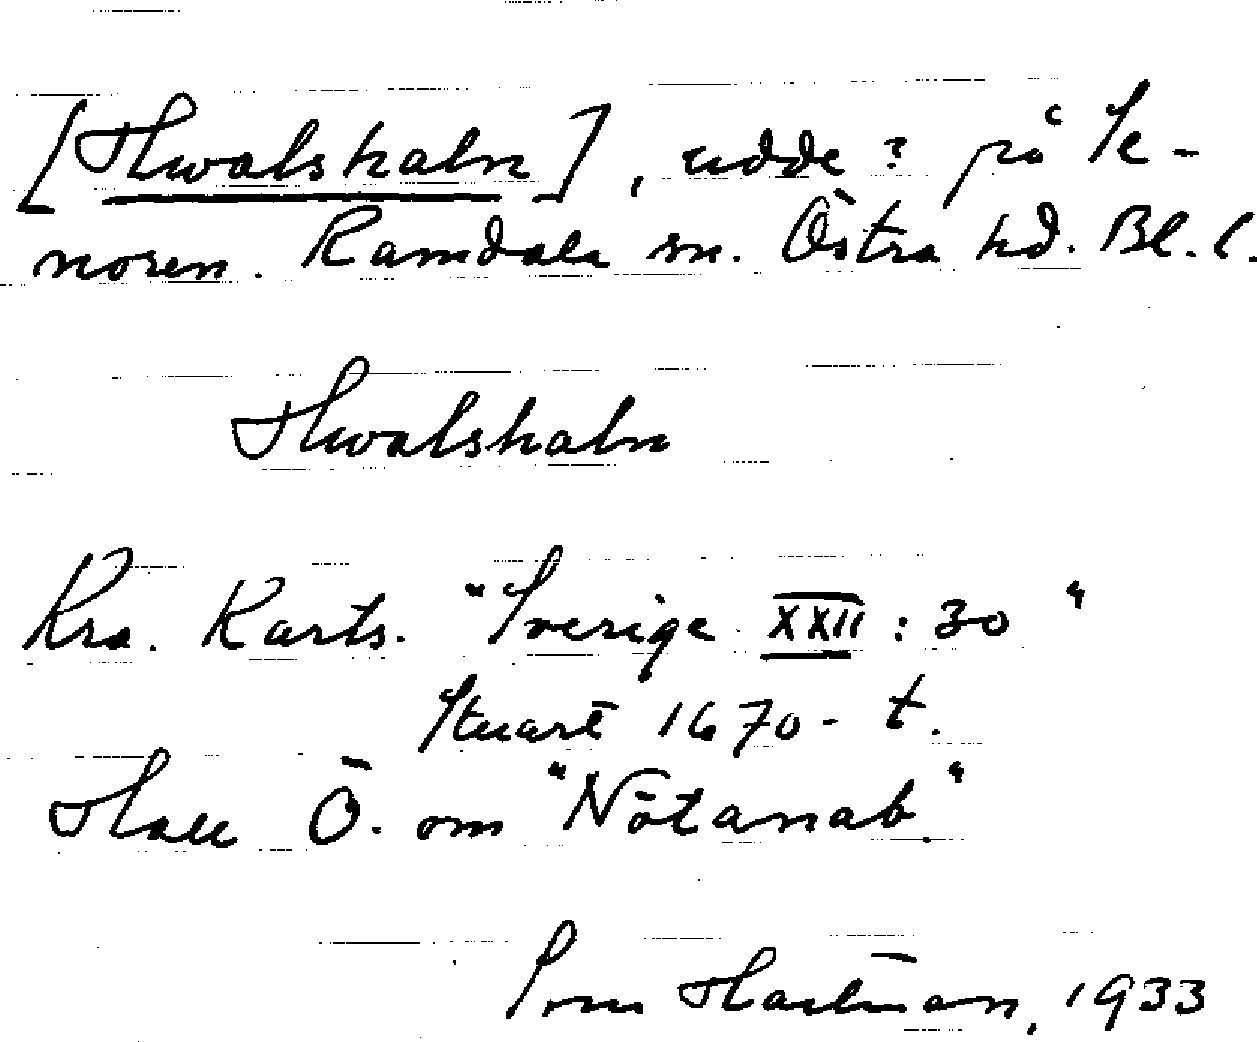 [Hwalshaln], udde? på Se-
noren. Ramdala sn. Östra hd. Bl. l.
Hwalshaln
Kra. Karts. "Sverige XXII: 30"
Stuart 1670-t.
Ö. om "Nötanab."
Hartman, 1933